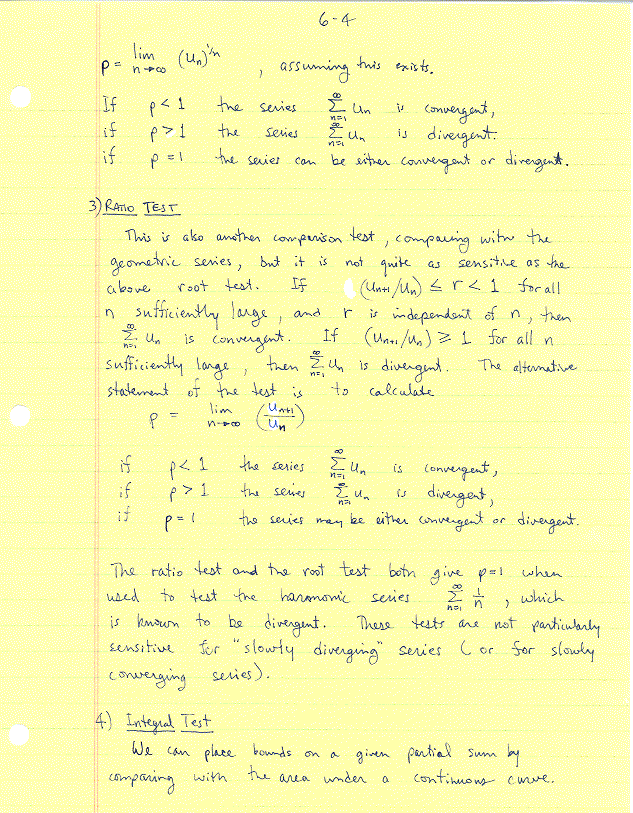 6-4
p = lim n→∞ (Un)^1/n , assuming this exists.
If p < 1 the series ∞ Σ n=1 Un is convergent,
if p > 1 the series ∞ Σ n=1 Un is divergent.
if p = 1 the series can be either convergent or divergent.
3) RATIO TEST
This is also another comparison test, comparing with the
geometric series, but it is not quite as sensitive as the
above root test. If (Un+1/Un) ≤ r < 1 for all
n sufficiently large, and r is independent of n, then
∞ Σ n=1 Un is convergent. If (Un+1/Un) ≥ 1 for all n
sufficiently large, then ∞ Σ n=1 Un is divergent. The alternative
statement of the test is to calculate
p = lim n→∞ (Un+1/Un)
if p < 1 the series ∞ Σ n=1 Un is convergent,
if p > 1 the series ∞ Σ n=1 Un is divergent,
if p = 1 the series may be either convergent or divergent.
The ratio test and the root test both give p=1 when
used to test the harmonic series ∞ Σ n=1 1/n , which
is known to be divergent. These tests are not particularly
sensitive for "slowly diverging" series (or for slowly
converging series).
4) Integral Test
We can place bounds on a given partial sum by
comparing with the area under a continuous curve.